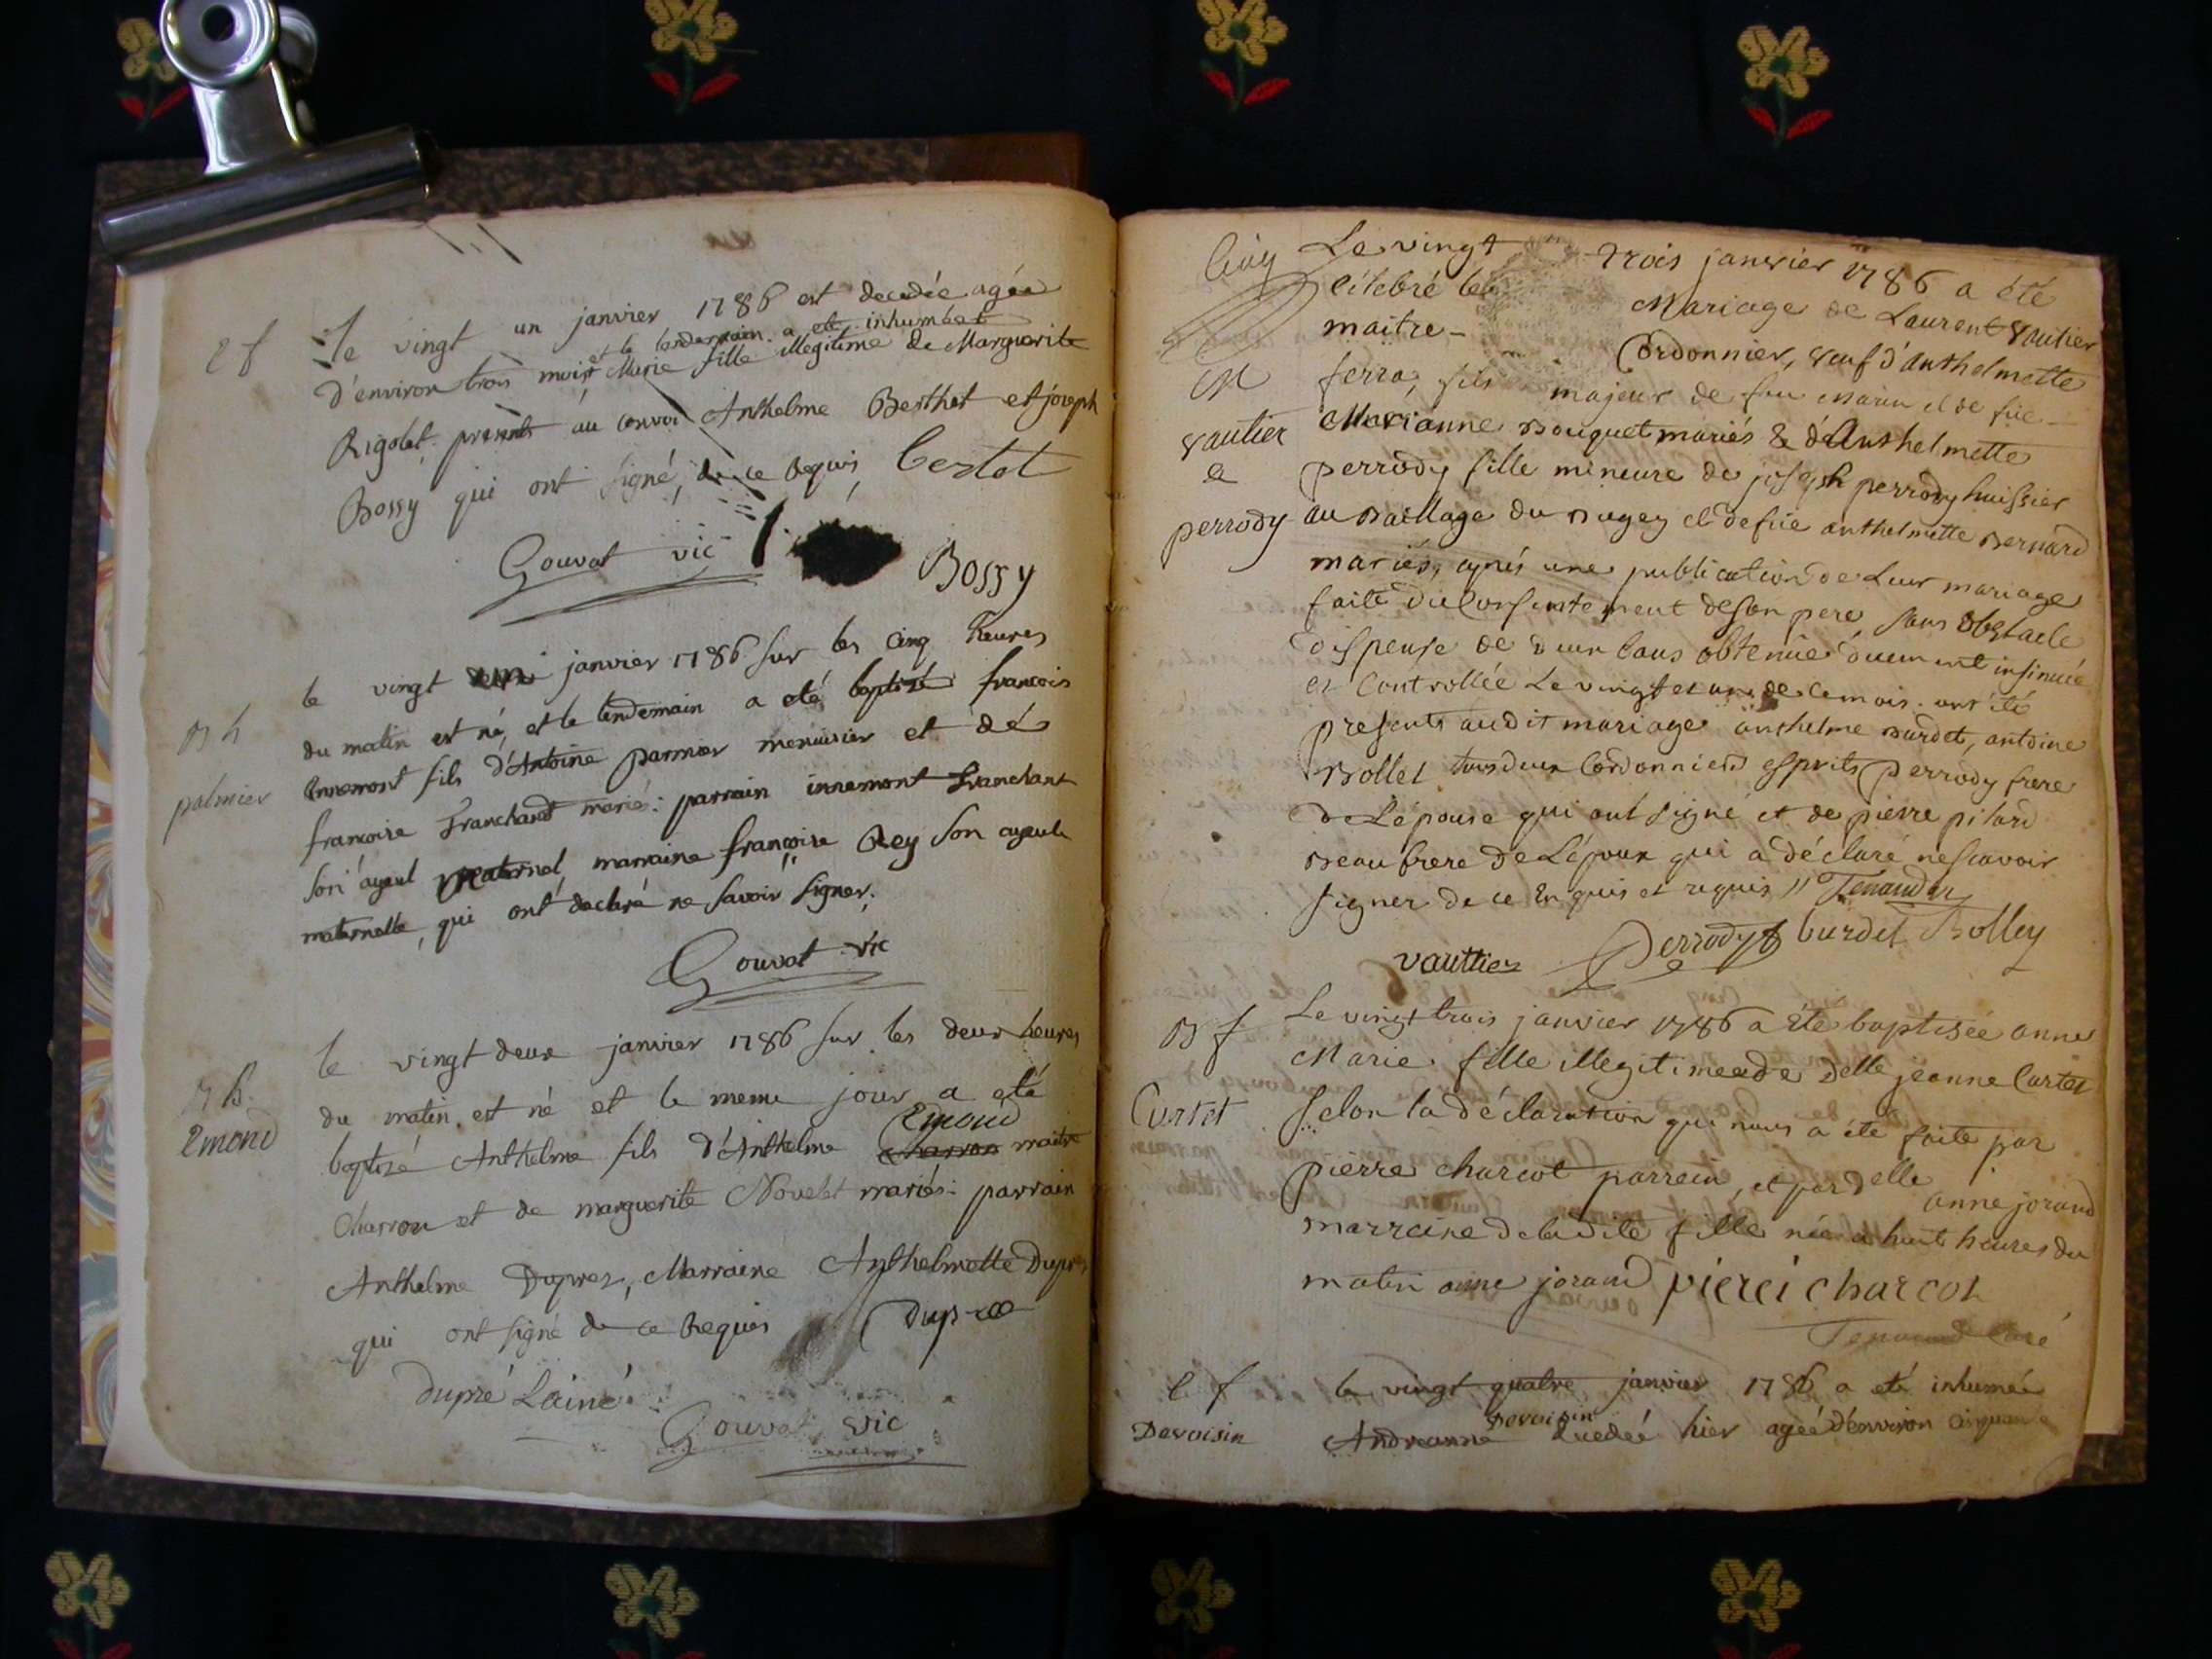 Le vingt un janvier 1786 est decedée agée
et le lendemain a été inhumée
d'environ trois mois Marie fille illegitime de Marguerite
Rigolet. présents au convoi Anthelme Berthet et joseph
Bossy qui ont signé, de ce Requis, bertet
Gouvat vic
Bossy
B h
palmier
le vingt un janvier 1786 sur les cinq heures
du matin est né, et le lendemain a été baptisé françois
innemont fils d'Antoine parmier menuisier et de
francoise franchant mariés: parrain innemont franchant
son ayeul maternel, marraine françoise Rey son ayeule
maternelle, qui ont declaré ne savoir signer.
Gouvat vic
B h.
Emond
le vingt deux janvier 1786 sur les deux heures
du matin est né et le meme jour a eté
Emond
baptisé Anthelme fils d'Anthelme charron maitre
Charron et de marguerite Novelet mariés: parrain
Anthelme Duprez, Marraine Anthelmette Duprez
qui ont signé de ce Requis
dupré Lainé
Gouvat, vic
Cinq
M
vautier
&
perrody
Le vingt trois janvier 1786 a été
célébré le Mariage de Laurent vautier
maitre Cordonnier, veuf d'anthelmette
ferra, fils majeur de feu Marin et de füe
Marianne Bouquet mariés & d'Anthelmette
perrody fille mineure de joseph perrody huissier
au Baillage du Bugey et defüe anthelmette Bernard
mariés, après une publication de Leur mariage
faite du Consentement deson pere sans Obstacle
dispense de deux bans obtenüe duement insinuée
et Controllée Le vingt et un de ce mois. ont été
presents audit mariage anthelme Burdet, antoine
Bollet tous deux Cordonniers esprits perrody frere
de L'épouse qui ont signé et de pierre pilard
Beaufrere de L'époux qui a déclaré nescavoir
signer de ce Enquis et requis //
vauttier Perrody burdet Bolley
B f
Curtet
Le vingt trois janvier 1786 a été baptisée anne
Marie fille illegitime de delle jeanne Curtet
selon la déclaration qui nous a été faite par
pierre charcot parrein, et par delle anne jorand
marreine de ladite fille née a huit heures du
matin anne jorand pierei charcot
Curé
e f
Devoisin
le vingt quatre janvier 1786 a eté inhumée
Devoisin
Andreanne decedée hier ageé d'environ cinquante